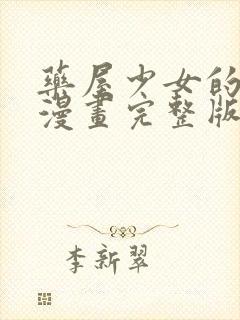 藥屋少女的
漫畫完整版
李新翠